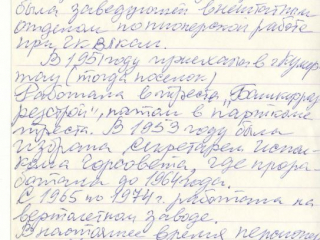 была заведующей внештатным
отделом по пионерской работе
при ГК ВЛКСМ.
В 1951 году приехала в г. Кумер-
тау (тогда поселок)
Работала в тресте "Башкирраз-
резстрой", потом в парткоме
треста. В 1953 году была
избрана секретарем испол-
кома горсовета, где прора-
ботала до 1964 года.
С 1965 по 1974 г. работала на
вертолетном заводе.
В настоящее время персональн